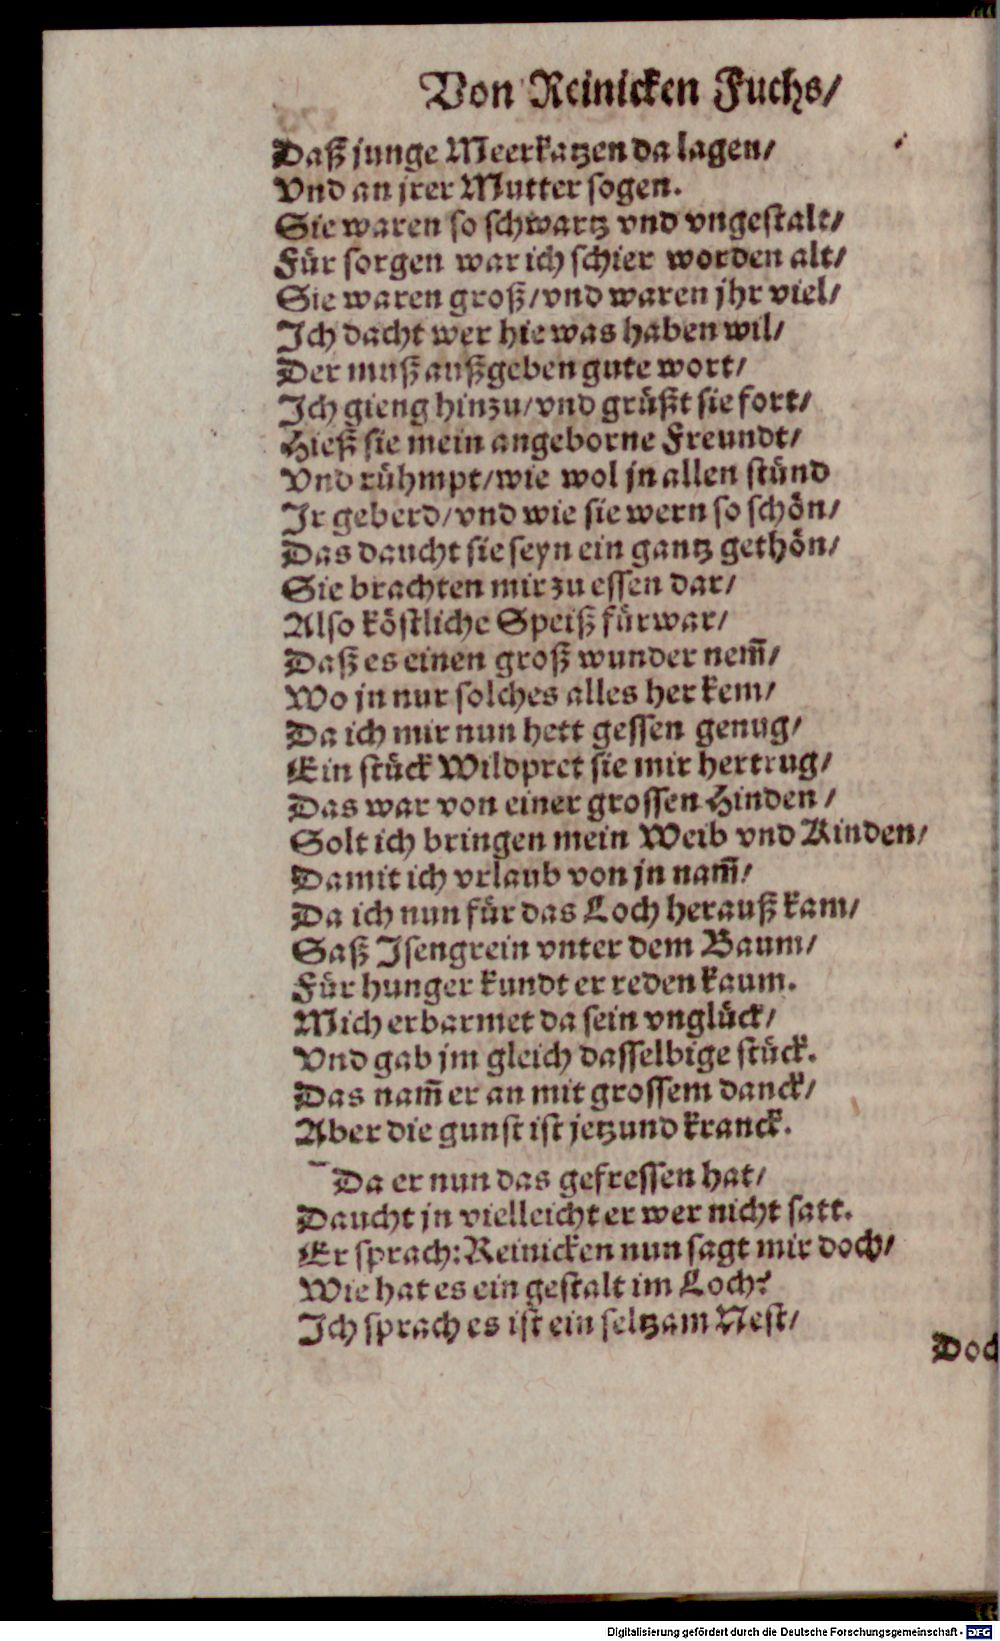 Von Reinicken Fuchs/
Daß junge Meerkatzen da lagen/
Vnd an jrer Mutter sogen.
Sie waren so schwartz vnd vngestalt/
Für sorgen war ich schier worden alt/
Sie waren groß/vnd waren jhr viel/
Ich dacht wer hie was haben wil/
Der muß außgeben gute wort/
Ich gieng hinzu/vnd grüßt sie fort/
Hieß sie mein angeborne Freundt/
Vnd rühmpt/wie wol jn allen stünd
Ir geberd/vnd wie sie wern so schön/
Das daucht sie seyn ein gantz gethön/
Sie brachten mir zu essen dar/
Also köstliche Speiß fürwar/
Daß es einen groß wunder nem̃/
Wo jn nur solches alles her kem/
Da ich mir nun hett gessen genug/
Ein stück Wildpret sie mir hertrug/
Das war von einer grossen Hinden/
Solt ich bringen mein Weib vnd Kinden/
Damit ich vrlaub von jn nam̃/
Da ich nun für das Loch herauß kam/
Saß Isengrein vnter dem Baum/
Für hunger kundt er reden kaum.
Mich erbarmet da sein vnglück/
Vnd gab jm gleich dasselbige stück.
Das nam̃ er an mit grossem danck/
Aber die gunst ist jetzund kranck.
Da er nun das gefressen hat/
Daucht jn vielleicht er wer nicht satt.
Er sprach: Reinicken nun sagt mir doch/
Wie hat es ein gestalt im Loch?
Ich sprach es ist ein seltzam Nest/
Doch
Digitalisierung gefördert durch die Deutsche Forschungsgemeinschaft - DFG